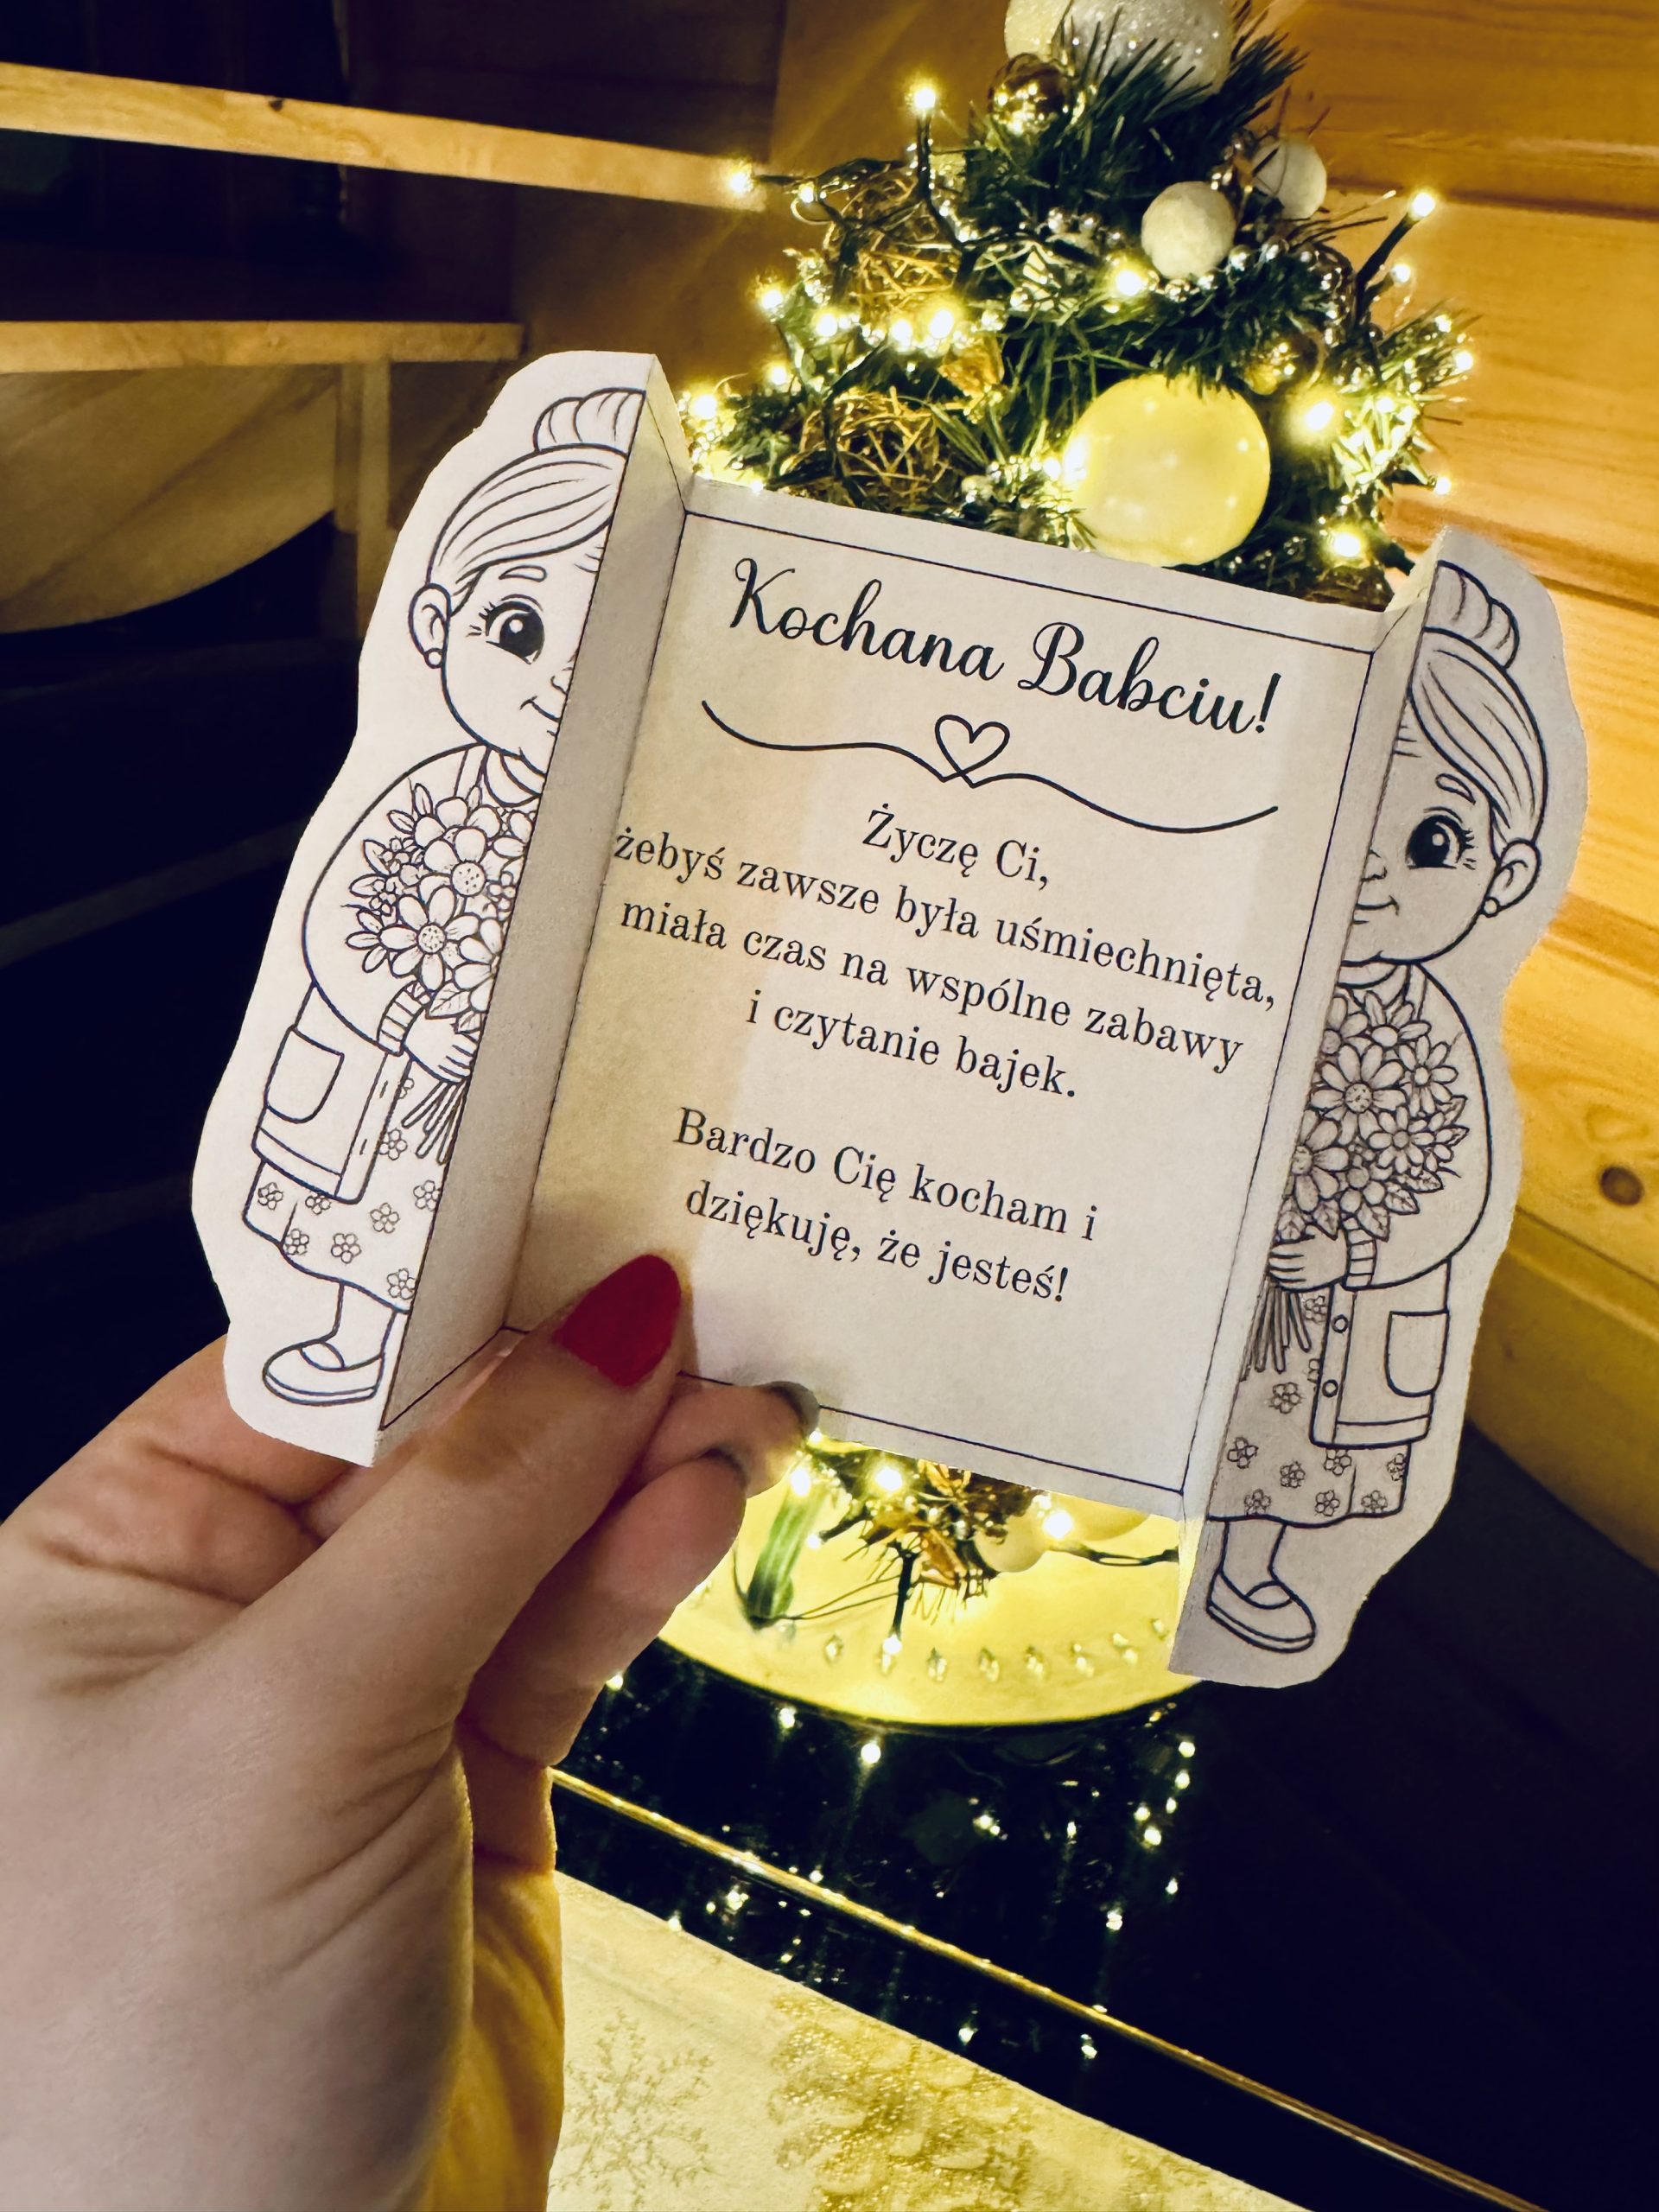 Kochana Babciu!
Życzę Ci,
żebyś zawsze była uśmiechnięta,
miała czas na wspólne zabawy
i czytanie bajek.
Bardzo Cię kocham i
dziękuję, że jesteś!